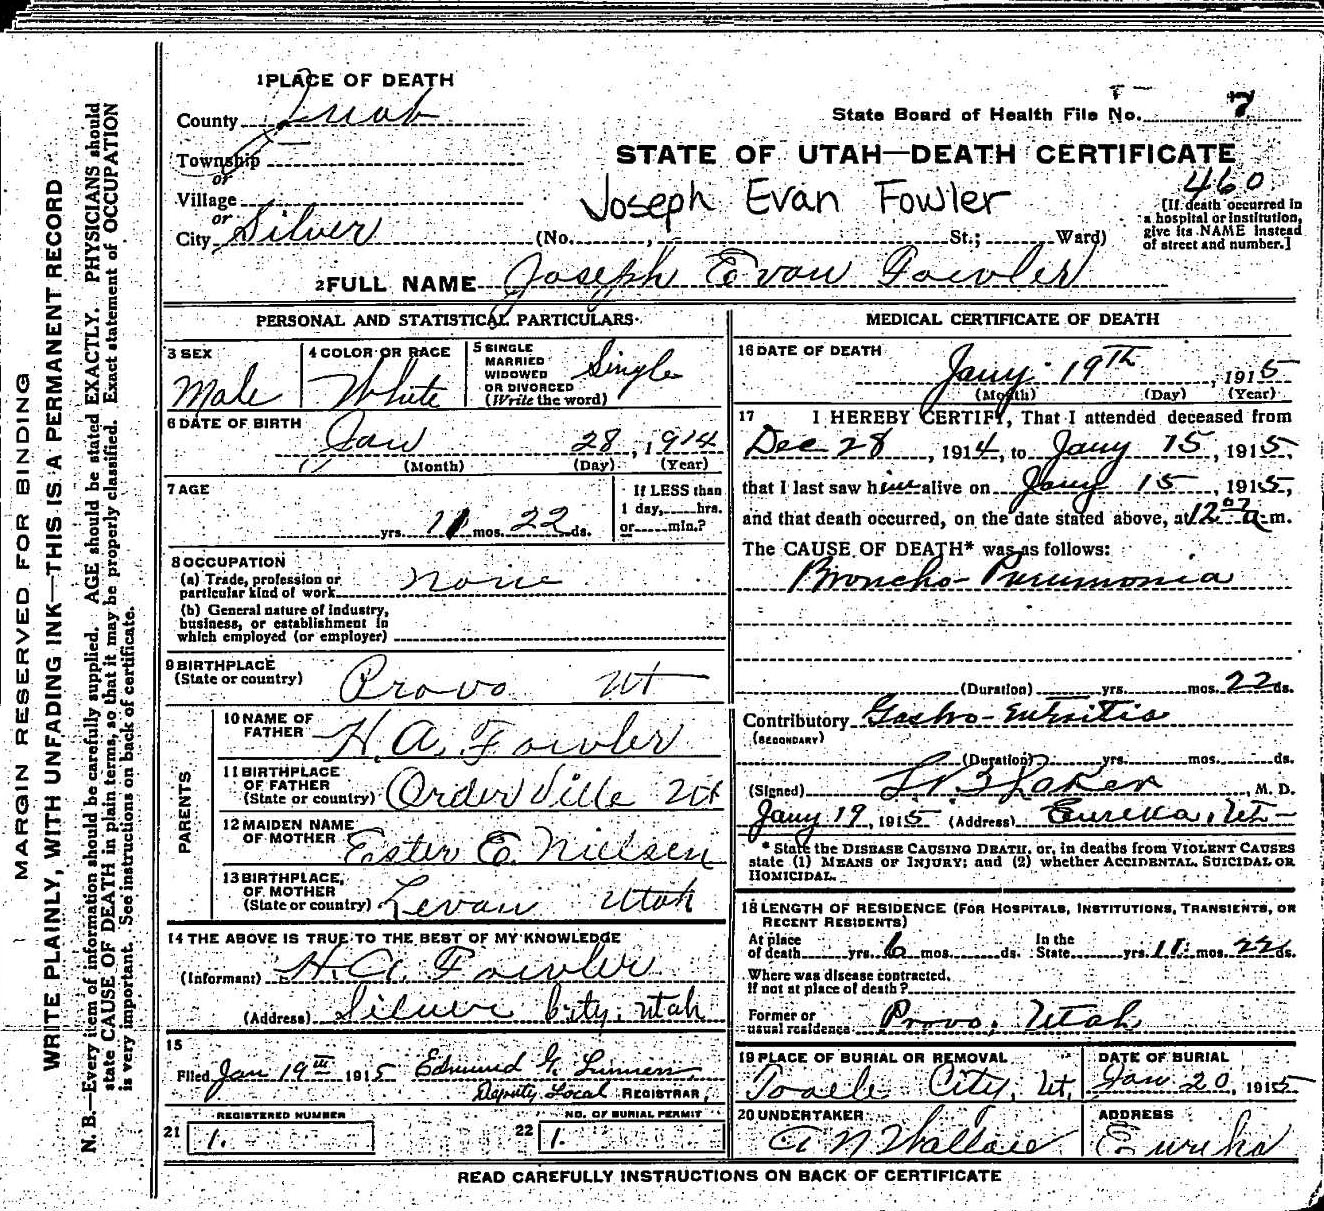 1 PLACE OF DEATH
County Juab
State Board of Health File No. 7
Township
or
Village
or
City Silver
STATE OF UTAH—DEATH CERTIFICATE
460
Joseph Evan Fowler
(No. , St.; Ward)
[If death occurred in
a hospital or institution,
give its NAME instead
of street and number.]
2 FULL NAME Joseph Evan Fowler
PERSONAL AND STATISTICAL PARTICULARS
3 SEX
Male
4 COLOR OR RACE
White
5 SINGLE
MARRIED
WIDOWED
OR DIVORCED
(Write the word)
Single
6 DATE OF BIRTH
Jan 28, 1914
(Month) (Day) (Year)
7 AGE
yrs. 11 mos. 22 ds.
If LESS than
1 day, hrs.
or min.?
8 OCCUPATION
(a) Trade, profession or
particular kind of work none
(b) General nature of industry,
business, or establishment in
which employed (or employer)
9 BIRTHPLACE
(State or country) Provo Ut
PARENTS
10 NAME OF
FATHER H. A. Fowler
11 BIRTHPLACE
OF FATHER
(State or country) Orderville Ut
12 MAIDEN NAME
OF MOTHER Ester E. Nielsen
13 BIRTHPLACE
OF MOTHER
(State or country) Levan Utah
14 THE ABOVE IS TRUE TO THE BEST OF MY KNOWLEDGE
(Informant) H. A. Fowler
(Address) Silver City, Utah
15
Filed Jan 19th 1915 Edmund
Deputy Local REGISTRAR
REGISTERED NUMBER
21 1.
NO. OF BURIAL PERMIT
22 1.
MEDICAL CERTIFICATE OF DEATH
16 DATE OF DEATH
Jany 19th, 1915
(Month) (Day) (Year)
17 I HEREBY CERTIFY, That I attended deceased from
Dec 28, 1914, to Jany 15, 1915,
that I last saw him alive on Jany 15, 1915,
and that death occurred, on the date stated above, at 12 07 a m.
The CAUSE OF DEATH* was as follows:
Broncho-Pneumonia
(Duration) yrs. mos. 22 ds.
Contributory Gastro-enteritis
(SECONDARY)
(Duration) yrs. mos. ds.
(Signed) , M. D.
Jany 19, 1915 (Address) Eureka, Ut—
* State the DISEASE CAUSING DEATH, or, in deaths from VIOLENT CAUSES
state (1) MEANS OF INJURY; and (2) whether ACCIDENTAL, SUICIDAL OR
HOMICIDAL.
18 LENGTH OF RESIDENCE (FOR HOSPITALS, INSTITUTIONS, TRANSIENTS, OR
RECENT RESIDENTS)
At place
of death yrs. 6 mos. ds.
In the
State yrs. 11 mos. 22 ds.
Where was disease contracted,
if not at place of death?
Former or
usual residence Provo, Utah
19 PLACE OF BURIAL OR REMOVAL
Tooele City, Ut.
DATE OF BURIAL
Jan 20, 1915
20 UNDERTAKER
Wallace
ADDRESS
Eureka
READ CAREFULLY INSTRUCTIONS ON BACK OF CERTIFICATE
MARGIN RESERVED FOR BINDING
WRITE PLAINLY, WITH UNFADING INK—THIS IS A PERMANENT RECORD
N. B.—Every item of information should be carefully supplied. AGE should be stated EXACTLY. PHYSICIANS should
state CAUSE OF DEATH in plain terms, so that it may be properly classified. Exact statement of OCCUPATION
is very important. See instructions on back of certificate.